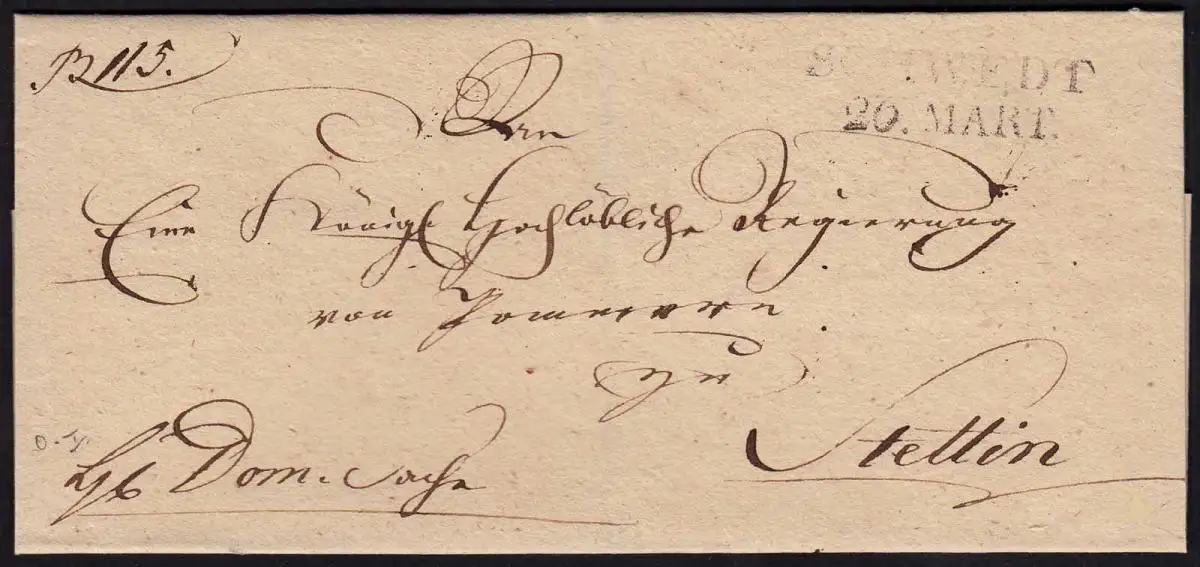 B 115.
SCHWEDT
20. MART.
An
Eine Königl Hochlöbliche Regierung
von Pommern
zu
Stettin
Dom. Sache